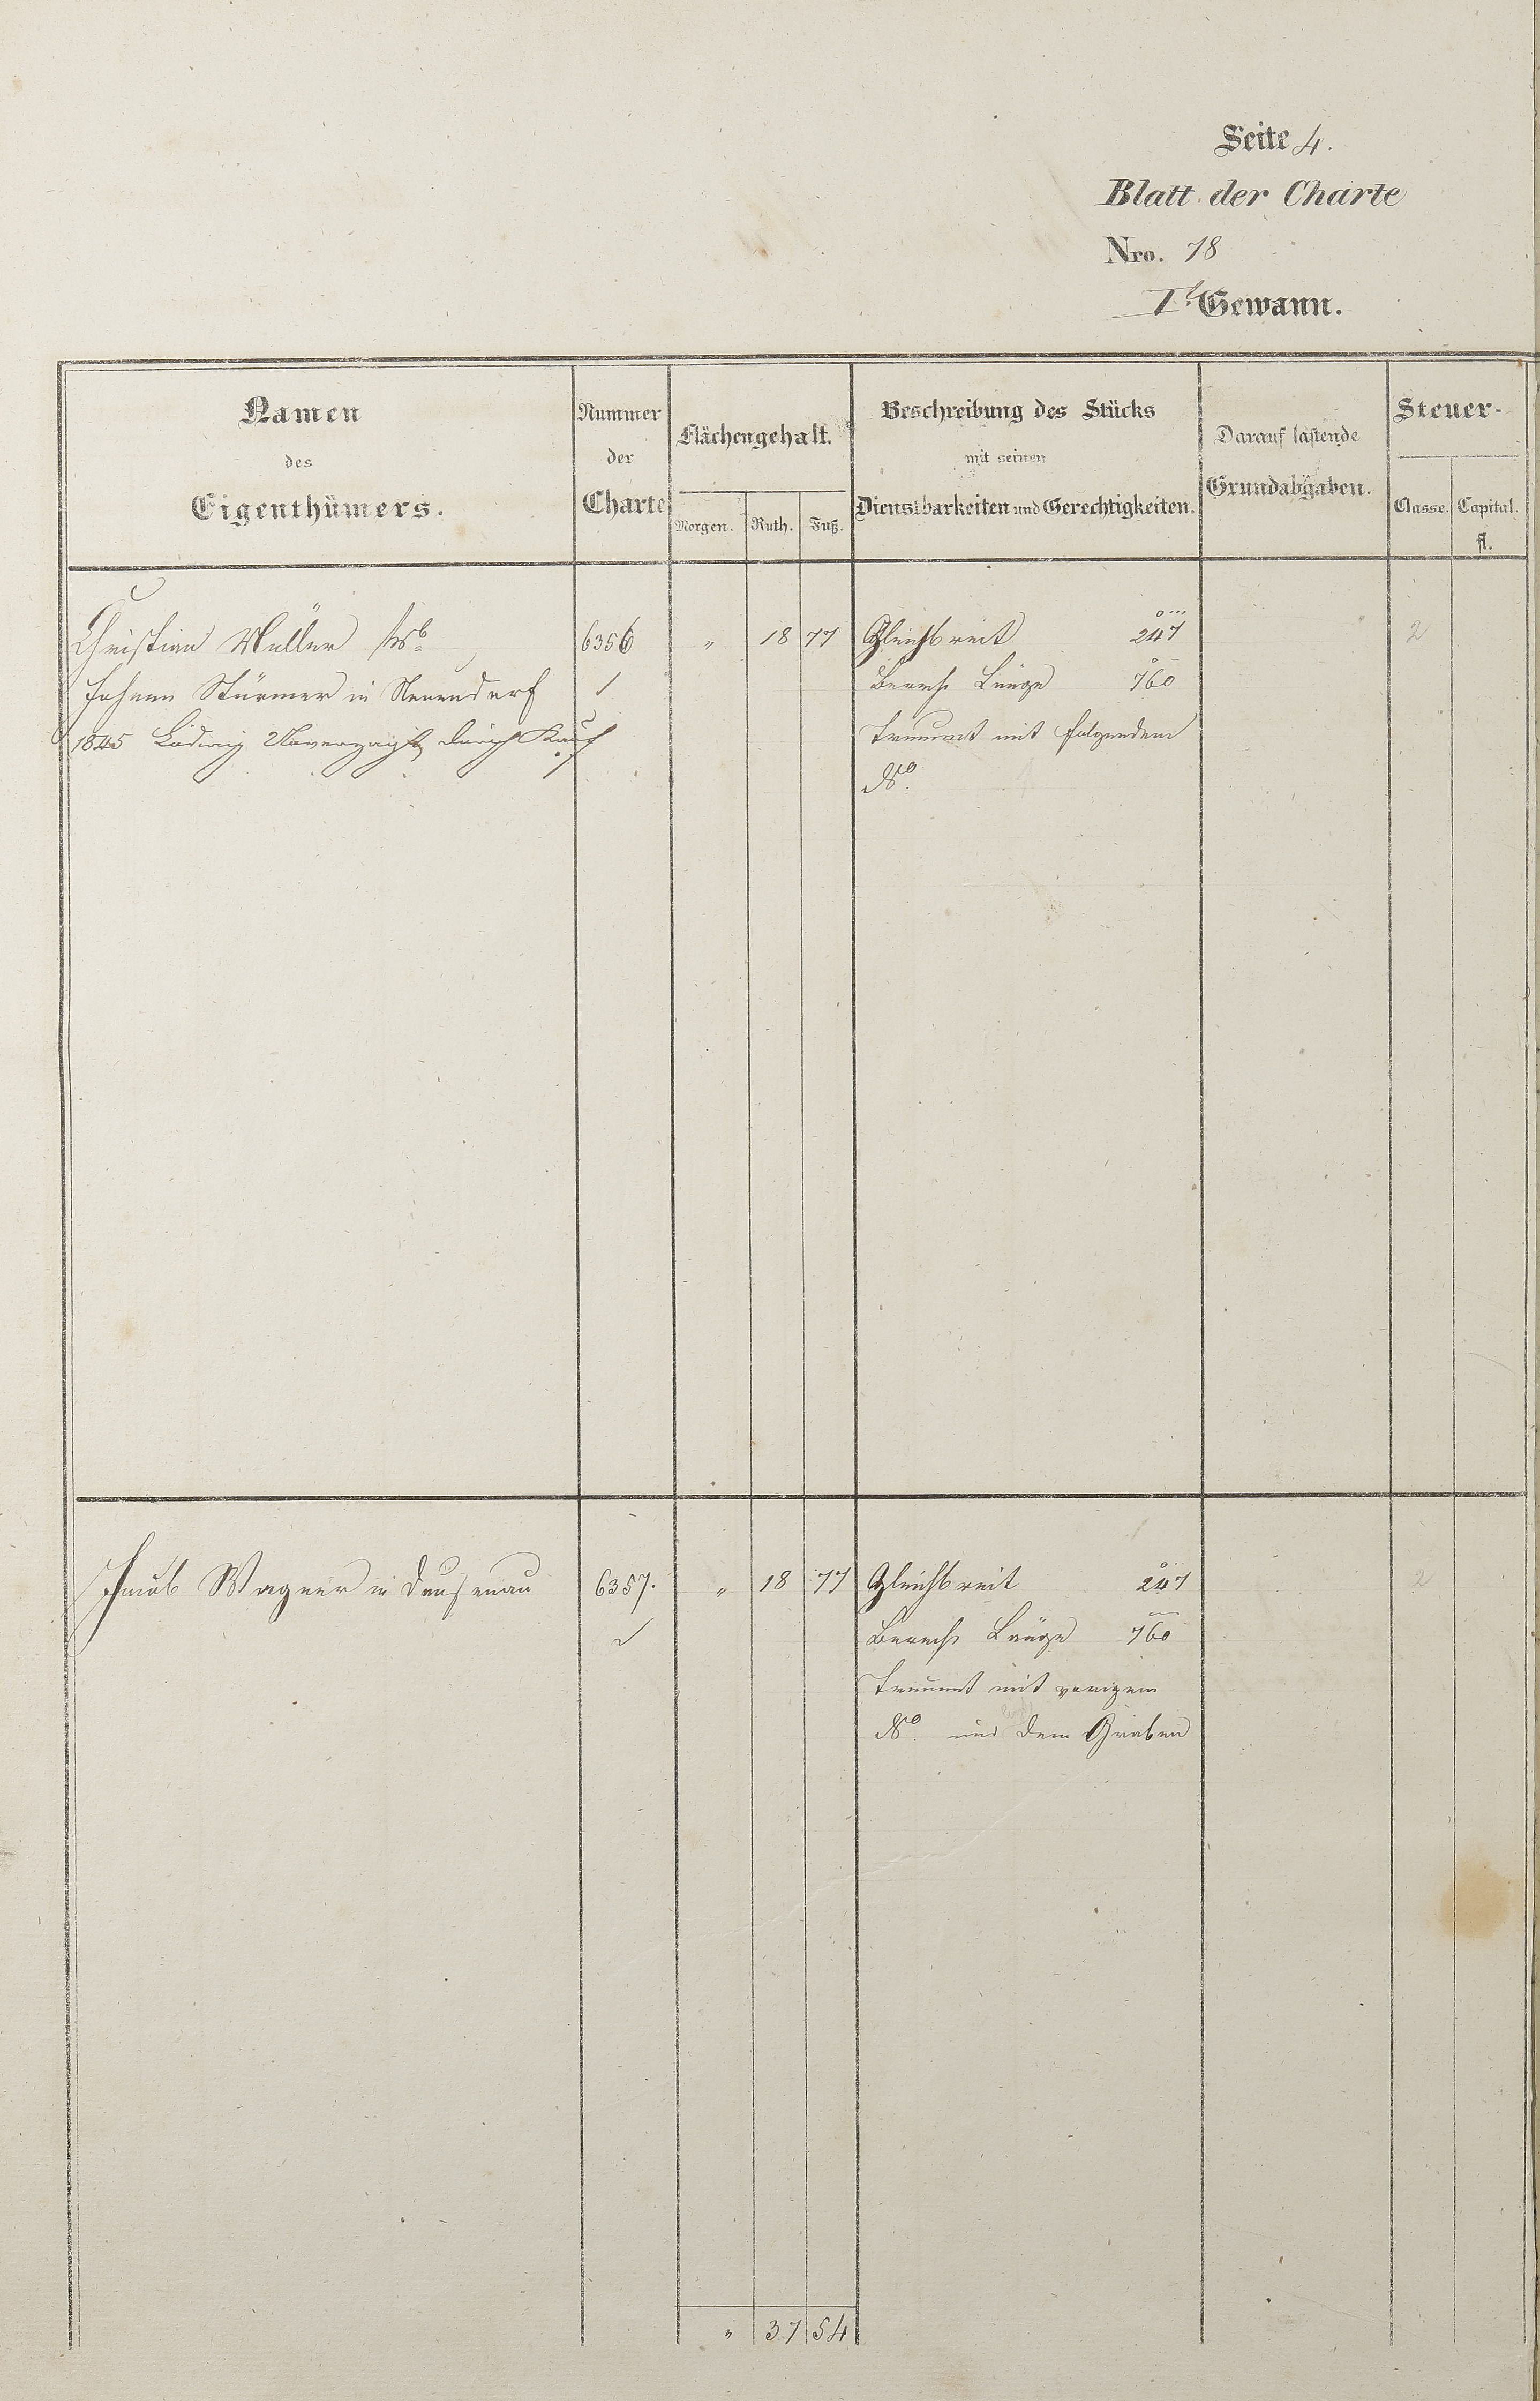 Seite 4.
Blatt der Charte
Nro. 18
I. Gewann.
Namen des Eigenthümers.
Nummer der Charte
Flächengehalt.
Morgen. Ruth. Fuß.
Beschreibung des Stücks mit seinen Dienstbarkeiten und Gerechtigkeiten.
Darauf lastende Grundabgaben.
Steuer-
Classe. Capital.
fl.
Christian Müller 6356 " 18 77 Gleichbreit 247 2
Johann Stürmer in Nevendorf Berech Länge 760
1845 Ludwig Unverzagt durch Kauf Trennt mit folgendem
No.
Jacob Wagner in Dausenau 6357. " 18 77 Gleichbreit 247 2
Berech Länge 760
Trennt mit vorigem
No. und dem Graben
" 37 54